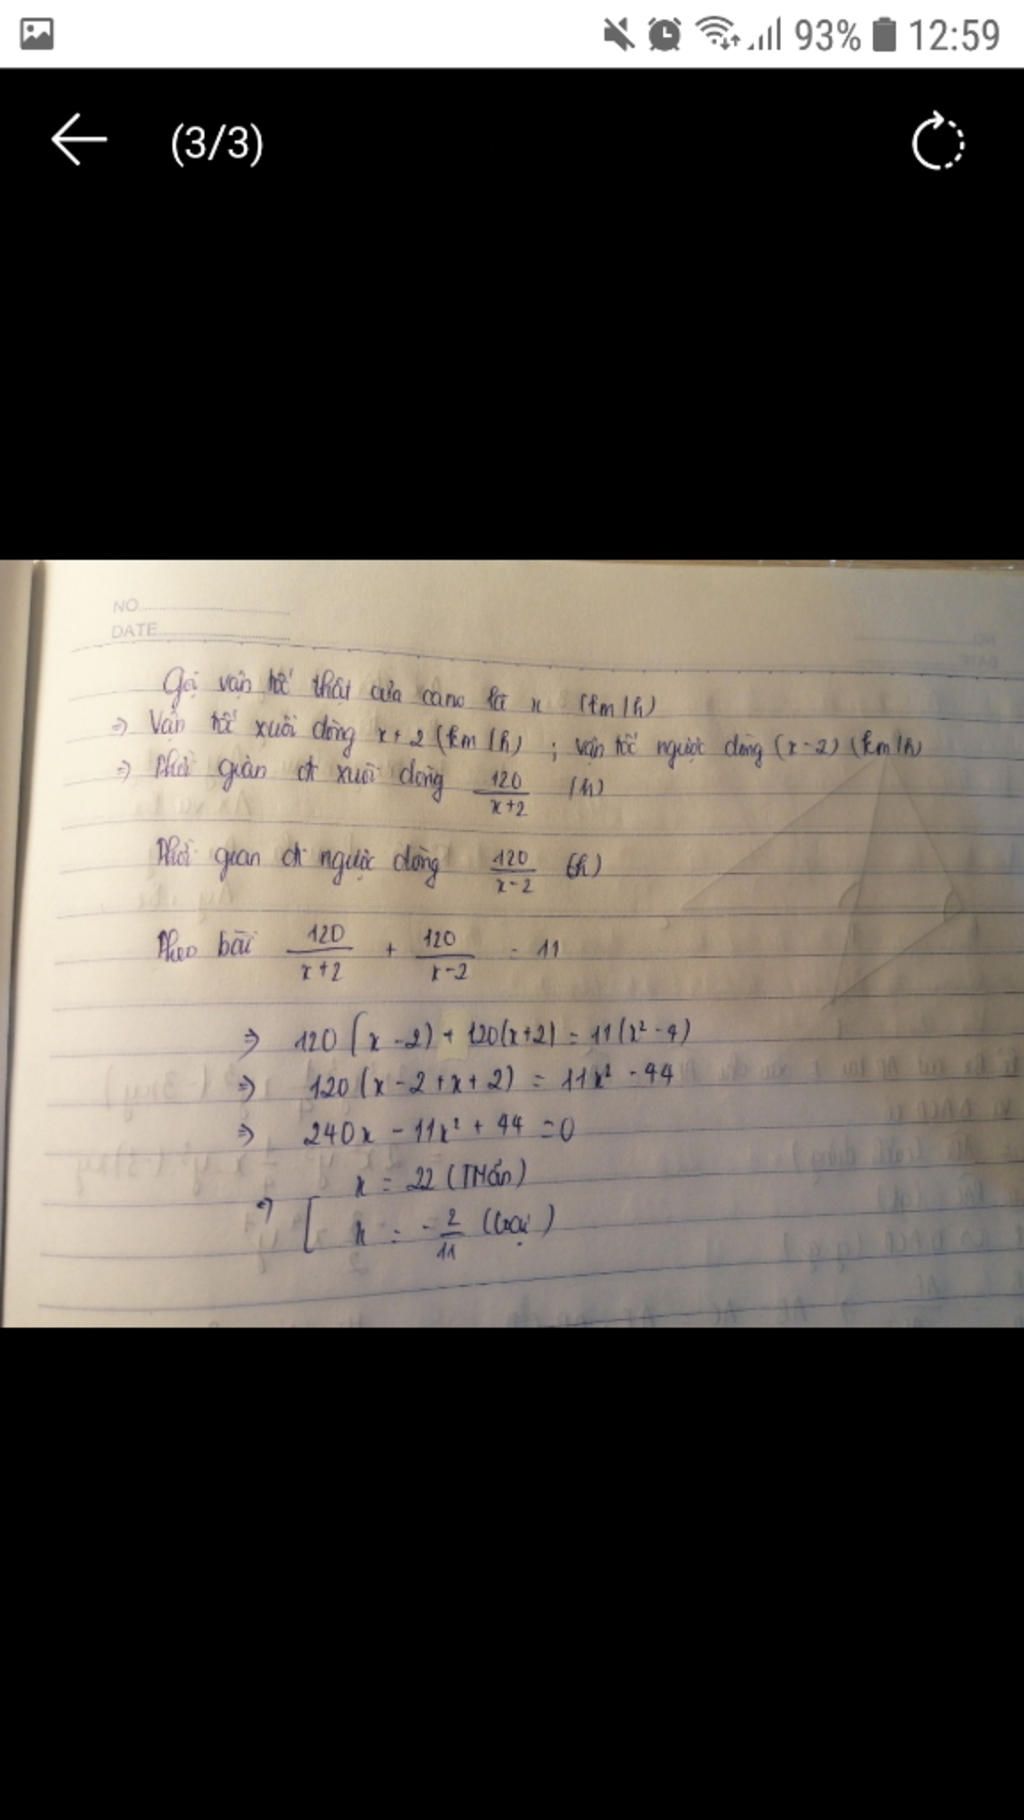 93% 12:59
(3/3)
NO
DATE
Gọi vận tốc thật của cano là x (km/h)
=> Vận tốc xuôi dòng x+2 (km/h) ; vận tốc ngược dòng (x-2) (km/h)
=> Thời gian đi xuôi dòng 120/(x+2) (h)
Thời gian đi ngược dòng 120/(x-2) (h)
Theo bài 120/(x+2) + 120/(x-2) = 11
=> 120(x-2) + 120(x+2) = 11(x²-4)
=> 120(x-2+x+2) = 11x² - 44
=> 240x - 11x² + 44 = 0
=> [ x = 22 (TMãn)
x = -2/11 (loại)